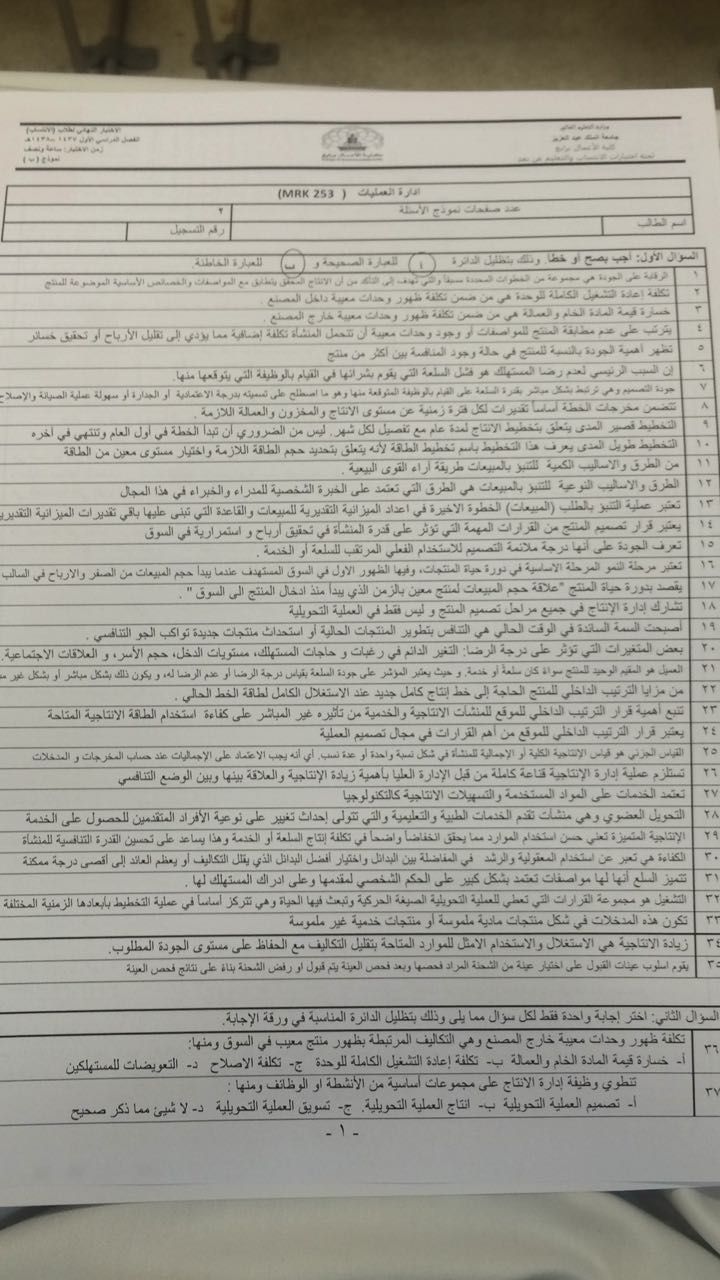 وزارة التعليم العالي
جامعة الملك عبد العزيز
كلية الأعمال برابغ
لجنة اختبارات الانتساب والتعليم عن بعد
الاختبار النهائي لطلاب (الانتساب)
الفصل الدراسي الأول ١٤٣٧-١٤٣٨هـ
زمن الاختبار: ساعة ونصف
نموذج (ب)
ادارة العمليات (MRK 253)
عدد صفحات نموذج الأسئلة ٢
اسم الطالب رقم التسجيل
السؤال الأول: أجب بصح أو خطأ. وذلك بتظليل الدائرة أ للعبارة الصحيحة و ب للعبارة الخاطئة.
١ الرقابة على الجودة هي مجموعة من الخطوات المحددة مسبقاً والتي تهدف إلى التأكد من أن الانتاج المحقق يتطابق مع المواصفات والخصائص الأساسية الموضوعة للمنتج
٢ تكلفة إعادة التشغيل الكاملة للوحدة هي من ضمن تكلفة ظهور وحدات معيبة داخل المصنع .
٣ خسارة قيمة المادة الخام والعمالة هي من ضمن تكلفة ظهور وحدات معيبة خارج المصنع .
٤ يترتب على عدم مطابقة المنتج للمواصفات أو وجود وحدات معيبة أن تتحمل المنشأة تكلفة إضافية مما يؤدي إلى تقليل الأرباح أو تحقيق خسائر
٥ تظهر أهمية الجودة بالنسبة للمنتج في حالة وجود المنافسة بين أكثر من منتج
٦ إن السبب الرئيسي لعدم رضا المستهلك هو فشل السلعة التي يقوم بشرائها في القيام بالوظيفة التي يتوقعها منها.
٧ جودة التصميم وهي ترتبط بشكل مباشر بقدرة السلعة على القيام بالوظيفة المتوقعة منها وهو ما اصطلح على تسميته بدرجة الاعتمادية أو الجدارة أو سهولة عملية الصيانة والإصلاح
٨ تتضمن مخرجات الخطة أساساً تقديرات لكل فترة زمنية عن مستوى الانتاج والمخزون والعمالة اللازمة .
٩ التخطيط قصير المدى يتعلق بتخطيط الانتاج لمدة عام مع تفصيل لكل شهر. ليس من الضروري أن تبدأ الخطة في أول العام وتنتهي في أخره
١٠ التخطيط طويل المدى يعرف هذا التخطيط باسم تخطيط الطاقة لأنه يتعلق بتحديد حجم الطاقة اللازمة واختيار مستوى معين من الطاقة
١١ من الطرق والاساليب الكمية للتنبؤ بالمبيعات طريقة أراء القوى البيعية .
١٢ الطرق والاساليب النوعية للتنبؤ بالمبيعات هي الطرق التي تعتمد على الخبرة الشخصية للمدراء والخبراء في هذا المجال
١٣ تعتبر عملية التنبؤ بالطلب (المبيعات) الخطوة الاخيرة في اعداد الميزانية التقديرية للمبيعات والقاعدة التي تبنى عليها باقي تقديرات الميزانية التقديرية
١٤ يعتبر قرار تصميم المنتج من القرارات المهمة التي تؤثر على قدرة المنشأة في تحقيق أرباح و استمرارية في السوق
١٥ تعرف الجودة على أنها درجة ملائمة التصميم للاستخدام الفعلي المرتقب للسلعة أو الخدمة .
١٦ تعتبر مرحلة النمو المرحلة الاساسية في دورة حياة المنتجات، وفيها الظهور الاول في السوق المستهدف عندما يبدأ حجم المبيعات من الصفر والارباح في السالب
١٧ يقصد بدورة حياة المنتج "علاقة حجم المبيعات لمنتج معين بالزمن الذي يبدأ منذ ادخال المنتج الى السوق " .
١٨ تشارك إدارة الإنتاج في جميع مراحل تصميم المنتج و ليس فقط في العملية التحويلية
١٩ أصبحت السمة السائدة في الوقت الحالي هي التنافس بتطوير المنتجات الحالية أو استحداث منتجات جديدة تواكب الجو التنافسي .
٢٠ بعض المتغيرات التي تؤثر على درجة الرضا: التغير الدائم في رغبات و حاجات المستهلك، مستويات الدخل، حجم الأسر، و العلاقات الاجتماعية.
٢١ العميل هو المقيم الوحيد للمنتج سواءً كان سلعةً أو خدمة. و حيث يعتبر المؤشر على جودة السلعة بقياس درجة الرضا أو عدم الرضا له، و يكون ذلك بشكل مباشر أو بشكل غير
٢٢ من مزايا الترتيب الداخلي للمنتج الحاجة إلى خط إنتاج كامل جديد عند الاستغلال الكامل لطاقة الخط الحالي .
٢٣ تنبع أهمية قرار الترتيب الداخلي للموقع للمنشآت الانتاجية والخدمية من تأثيره غير المباشر على كفاءة استخدام الطاقة الانتاجية المتاحة
٢٤ يعتبر قرار الترتيب الداخلي للموقع من أهم القرارات في مجال تصميم العملية
٢٥ القياس الجزئي هو قياس الإنتاجية الكلية أو الإجمالية للمنشأة في شكل نسبة واحدة أو عدة نسب. أي أنه يجب الاعتماد على الإجماليات عند حساب المخرجات و المدخلات
٢٦ تستلزم عملية إدارة الإنتاجية قناعة كاملة من قبل الإدارة العليا بأهمية زيادة الإنتاجية والعلاقة بينها وبين الوضع التنافسي
٢٧ تعتمد الخدمات على المواد المستخدمة والتسهيلات الانتاجية كالتكنولوجيا
٢٨ التحويل العضوي وهي منشآت تقدم الخدمات الطبية والتعليمية والتي تتولى إحداث تغيير على نوعية الأفراد المتقدمين للحصول على الخدمة
٢٩ الإنتاجية المتميزة تعني حسن استخدام الموارد مما يحقق انخفاضاً واضحاً في تكلفة إنتاج السلعة أو الخدمة وهذا يساعد على تحسين القدرة التنافسية للمنشأة
٣٠ الكفاءة هي تعبر عن استخدام المعقولية والرشد في المفاضلة بين البدائل واختيار أفضل البدائل الذي يقلل التكاليف أو يعظم العائد إلى أقصى درجة ممكنة
٣١ تتميز السلع أنها لها مواصفات تعتمد بشكل كبير على الحكم الشخصي لمقدمها وعلى ادراك المستهلك لها .
٣٢ التشغيل هو مجموعة القرارات التي تعطي للعملية التحويلية الصيغة الحركية وتبعث فيها الحياة وهي تتركز أساساً في عملية التخطيط بأبعادها الزمنية المختلفة
٣٣ تكون هذه المدخلات في شكل منتجات مادية ملموسة أو منتجات خدمية غير ملموسة
٣٤ زيادة الانتاجية هي الاستغلال والاستخدام الامثل للموارد المتاحة بتقليل التكاليف مع الحفاظ على مستوى الجودة المطلوب.
٣٥ يقوم اسلوب عينات القبول على اختيار عينة من الشحنة المراد فحصها وبعد فحص العينة يتم قبول او رفض الشحنة بناءً على نتائج فحص العينة
السؤال الثاني: اختر إجابة واحدة فقط لكل سؤال مما يلى وذلك بتظليل الدائرة المناسبة في ورقة الإجابة.
٣٦ تكلفة ظهور وحدات معيبة خارج المصنع وهي التكاليف المرتبطة بظهور منتج معيب في السوق ومنها:
أ- خسارة قيمة المادة الخام والعمالة ب- تكلفة إعادة التشغيل الكاملة للوحدة ج- تكلفة الاصلاح د- التعويضات للمستهلكين
٣٧ تنطوي وظيفة إدارة الانتاج على مجموعات أساسية من الأنشطة او الوظائف ومنها :
أ- تصميم العملية التحويلية ب- انتاج العملية التحويلية. ج- تسويق العملية التحويلية د- لا شيئ مما ذكر صحيح
- ١ -